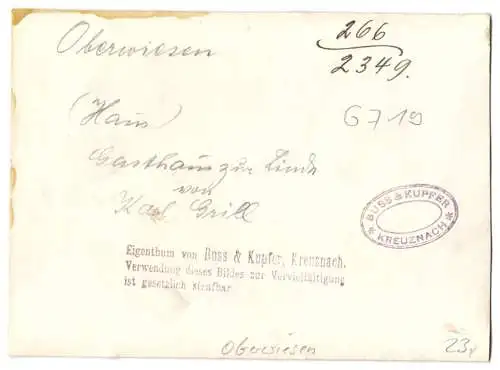 Oberwiesen
266
2349.
(Haus)
6719
Gasthaus zur Linde
von
Karl Grill
* BUSS & KUPFER *
KREUZNACH
Eigenthum von Buss & Kupfer, Kreuznach.
Verwendung dieses Bildes zur Vervielfältigung
ist gesetzlich strafbar
Oberwiesen